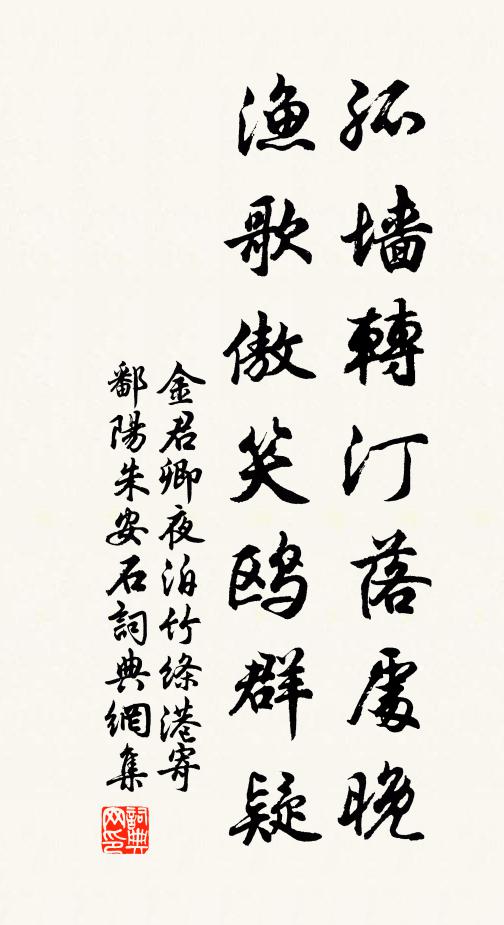 孤墙轉汀落處晚
漁歌傲笑鷗群疑
金君卿夜泊竹絛港寄
鄱陽朱安石詞典網集
詞典网印